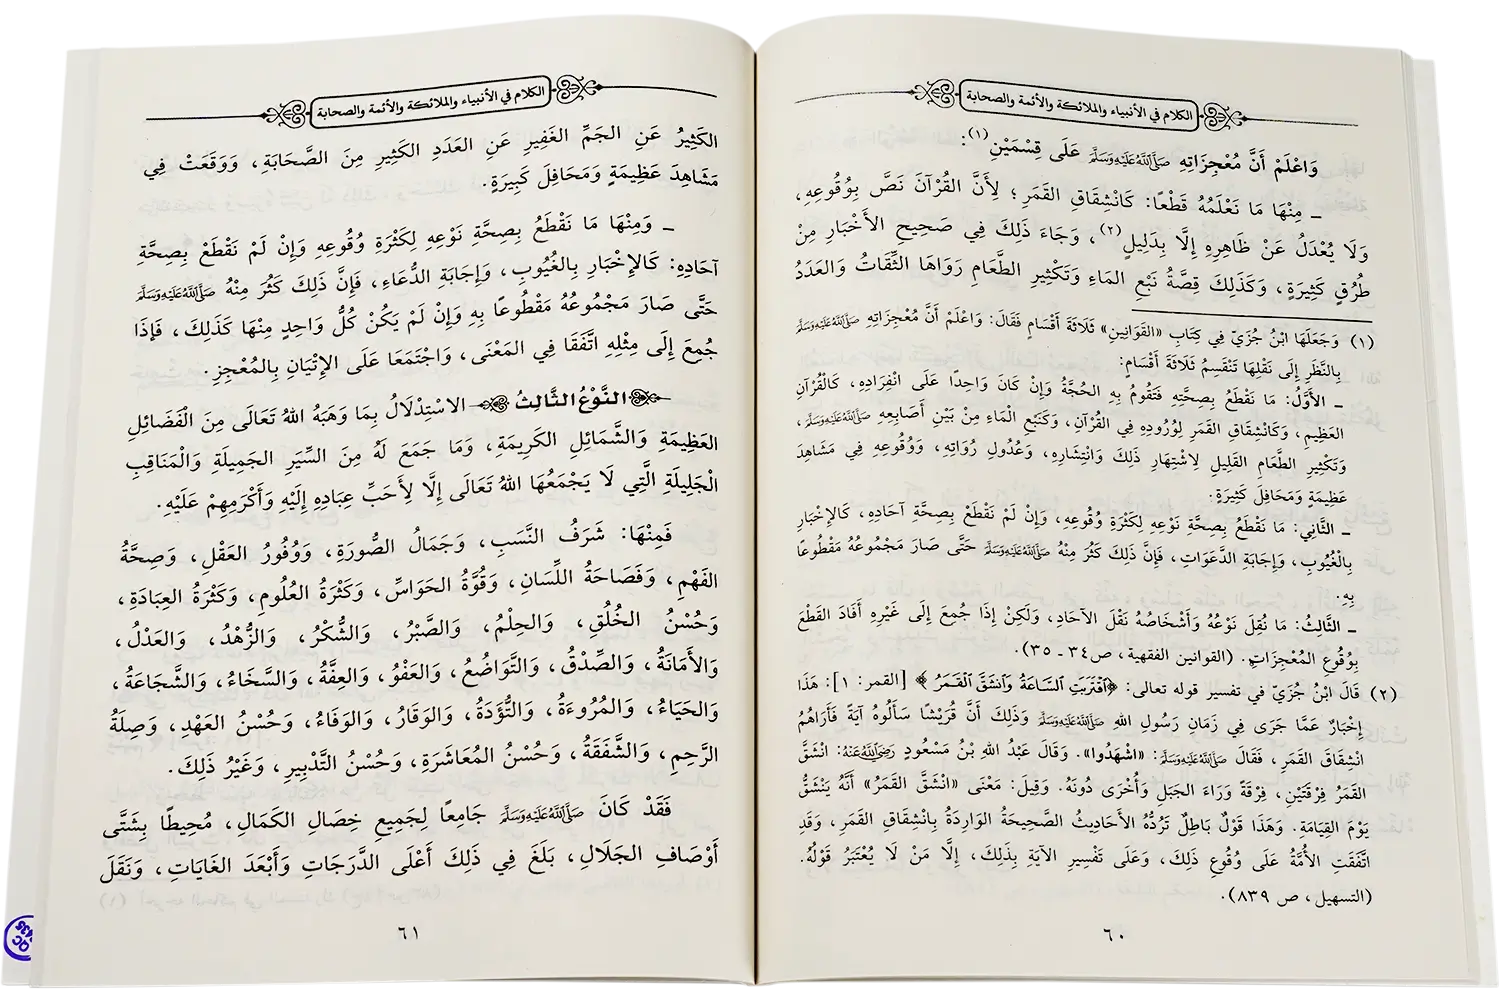 الكلام في الأنبياء والملائكة والأئمة والصحابة
وَاعْلَمْ أَنَّ مُعْجِزَاتِهِ ﷺ عَلَى قِسْمَيْنِ(١):
ـ مِنْهَا مَا نَعْلَمُهُ قَطْعًا: كَانْشِقَاقِ القَمَرِ؛ لِأَنَّ القُرْآنَ نَصَّ بِوُقُوعِهِ،
وَلَا يُعْدَلُ عَنْ ظَاهِرِهِ إِلَّا بِدَلِيلٍ(٢)، وَجَاءَ ذَلِكَ فِي صَحِيحِ الأَخْبَارِ مِنْ
طُرُقٍ كَثِيرَةٍ، وَكَذَلِكَ قِصَّةُ نَبْعِ المَاءِ وَتَكْثِيرِ الطَّعَامِ رَوَاهَا الثِّقَاتُ وَالعَدَدُ
(١) وَجَعَلَهَا ابْنُ جُزَيّ فِي كِتَابِ «القَوَانِينِ» ثَلَاثَةَ أَقْسَامٍ فَقَالَ: وَاعْلَمْ أَنَّ مُعْجِزَاتِهِ ﷺ
بِالنَّظَرِ إِلَى نَقْلِهَا تَنْقَسِمُ ثَلَاثَةَ أَقْسَامٍ:
ـ الأَوَّلُ: مَا نَقْطَعُ بِصِحَّتِهِ فَتَقُومُ بِهِ الحُجَّةُ وَإِنْ كَانَ وَاحِدًا عَلَى انْفِرَادِهِ، كَالْقُرْآنِ
العَظِيمِ، وَكَانْشِقَاقِ القَمَرِ لِوُرُودِهِ فِي القُرْآنِ، وَكَنَبْعِ الْمَاءِ مِنْ بَيْنِ أَصَابِعِهِ ﷺ،
وَتَكْثِيرِ الطَّعَامِ القَلِيلِ لِاشْتِهَارِ ذَلِكَ وَانْتِشَارِهِ، وَعُدُولِ رُوَاتِهِ، وَوُقُوعِهِ فِي مَشَاهِدَ
عَظِيمَةٍ وَمَحَافِلَ كَثِيرَةٍ.
ـ الثَّانِي: مَا نَقْطَعُ بِصِحَّةِ نَوْعِهِ لِكَثْرَةِ وُقُوعِهِ، وَإِنْ لَمْ نَقْطَعْ بِصِحَّةِ آحَادِهِ، كَالإِخْبَارِ
بِالْغُيُوبِ، وَإِجَابَةِ الدَّعَوَاتِ، فَإِنَّ ذَلِكَ كَثُرَ مِنْهُ ﷺ حَتَّى صَارَ مَجْمُوعُهُ مَقْطُوعًا
بِهِ.
ـ الثَّالِثُ: مَا نُقِلَ نَوْعُهُ وَأَشْخَاصُهُ نَقْلَ الآحَادِ، وَلَكِنْ إِذَا جُمِعَ إِلَى غَيْرِهِ أَفَادَ القَطْعَ
بِوُقُوعِ المُعْجِزَاتِ. (القوانين الفقهية، ص٣٤ ـ ٣٥).
(٢) قَالَ ابْنُ جُزَيّ في تفسير قوله تعالى: ﴿ٱقْتَرَبَتِ ٱلسَّاعَةُ وَٱنشَقَّ ٱلْقَمَرُ﴾ [القمر: ١]: هَذَا
إِخْبَارٌ عَمَّا جَرَى فِي زَمَانِ رَسُولِ اللهِ ﷺ وَذَلِكَ أَنَّ قُرَيْشًا سَأَلُوهُ آيَةً فَأَرَاهُمُ
انْشِقَاقَ القَمَرِ، فَقَالَ ﷺ: «اشْهَدُوا». وَقَالَ عَبْدُ اللهِ بْنُ مَسْعُودٍ رَضِيَ اللَّهُ عَنْهُ: انْشَقَّ
القَمَرُ فِرْقَتَيْنِ، فِرْقَةً وَرَاءَ الجَبَلِ وَأُخْرَى دُونَهُ. وَقِيلَ: مَعْنَى «انْشَقَّ القَمَرُ» أَنَّهُ يَنْشَقُّ
يَوْمَ القِيَامَةِ. وَهَذَا قَوْلٌ بَاطِلٌ تَرُدُّهُ الأَحَادِيثُ الصَّحِيحَةُ الوَارِدَةُ بِانْشِقَاقِ القَمَرِ، وَقَدِ
اتَّفَقَتِ الأُمَّةُ عَلَى وُقُوعِ ذَلِكَ، وَعَلَى تَفْسِيرِ الآيَةِ بِذَلِكَ، إِلَّا مَنْ لَا يُعْتَبَرُ قَوْلُهُ.
(التسهيل، ص ٨٣٩).
٦٠
الكلام في الأنبياء والملائكة والأئمة والصحابة
الكَثِيرُ عَنِ الجَمِّ الغَفِيرِ عَنِ العَدَدِ الكَثِيرِ مِنَ الصَّحَابَةِ، وَوَقَعَتْ فِي
مَشَاهِدَ عَظِيمَةٍ وَمَحَافِلَ كَبِيرَةٍ.
ـ وَمِنْهَا مَا نَقْطَعُ بِصِحَّةِ نَوْعِهِ لِكَثْرَةِ وُقُوعِهِ وَإِنْ لَمْ نَقْطَعْ بِصِحَّةِ
آحَادِهِ: كَالإِخْبَارِ بِالغُيُوبِ، وَإِجَابَةِ الدُّعَاءِ، فَإِنَّ ذَلِكَ كَثُرَ مِنْهُ ﷺ
حَتَّى صَارَ مَجْمُوعُهُ مَقْطُوعًا بِهِ وَإِنْ لَمْ يَكُنْ كُلُّ وَاحِدٍ مِنْهَا كَذَلِكَ، فَإِذَا
جُمِعَ إِلَى مِثْلِهِ اتَّفَقَا فِي المَعْنَى، وَاجْتَمَعَا عَلَى الإِتْيَانِ بِالمُعْجِزِ.
النَّوْعُ الثَّالِثُ الاسْتِدْلَالُ بِمَا وَهَبَهُ اللهُ تَعَالَى مِنَ الْفَضَائِلِ
العَظِيمَةِ وَالشَّمَائِلِ الكَرِيمَةِ، وَمَا جَمَعَ لَهُ مِنَ السِّيَرِ الجَمِيلَةِ وَالْمَنَاقِبِ
الْجَلِيلَةِ الَّتِي لَا يَجْمَعُهَا اللهُ تَعَالَى إِلَّا لِأَحَبِّ عِبَادِهِ إِلَيْهِ وَأَكْرَمِهِمْ عَلَيْهِ.
فَمِنْهَا: شَرَفُ النَّسَبِ، وَجَمَالُ الصُّورَةِ، وَوُفُورُ العَقْلِ، وَصِحَّةُ
الفَهْمِ، وَفَصَاحَةُ اللِّسَانِ، وَقُوَّةُ الحَوَاسِّ، وَكَثْرَةُ العُلُومِ، وَكَثْرَةُ العِبَادَةِ،
وَحُسْنُ الخُلُقِ، وَالحِلْمُ، وَالصَّبْرُ، وَالشُّكْرُ، وَالزُّهْدُ، وَالعَدْلُ،
وَالأَمَانَةُ، وَالصِّدْقُ، وَالتَّوَاضُعُ، وَالعَفْوُ، وَالعِفَّةُ، وَالسَّخَاءُ، وَالشَّجَاعَةُ،
وَالحَيَاءُ، وَالمُرُوءَةُ، وَالتُّؤَدَةُ، وَالوَقَارُ، وَالوَفَاءُ، وَحُسْنُ العَهْدِ، وَصِلَةُ
الرَّحِمِ، وَالشَّفَقَةُ، وَحُسْنُ المُعَاشَرَةِ، وَحُسْنُ التَّدْبِيرِ، وَغَيْرُ ذَلِكَ.
فَقَدْ كَانَ ﷺ جَامِعًا لِجَمِيعِ خِصَالِ الكَمَالِ، مُحِيطًا بِشَتَّى
أَوْصَافِ الجَلَالِ، بَلَغَ فِي ذَلِكَ أَعْلَى الدَّرَجَاتِ وَأَبْعَدَ الغَايَاتِ، وَنَقَلَ
٦١